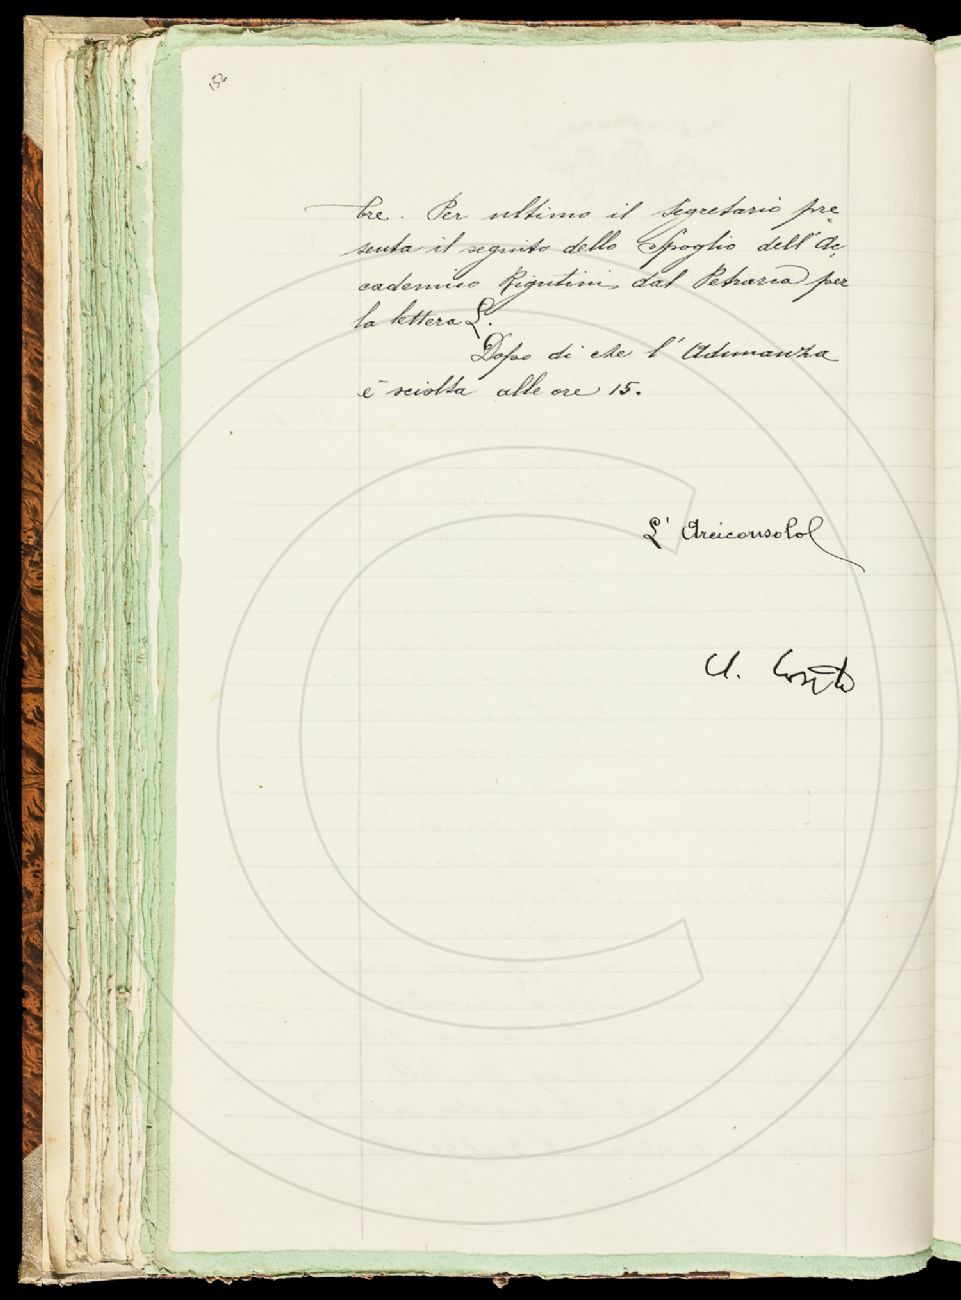 152
bre. Per ultimo il Segretario pre
senta il seguito dello Spoglio dell'Ac
cademico Rigutini dal Petrarca per
la lettera L.
Dopo di che l'Adunanza
è sciolta alle ore 15.
L'Arciconsolo
A. Conti